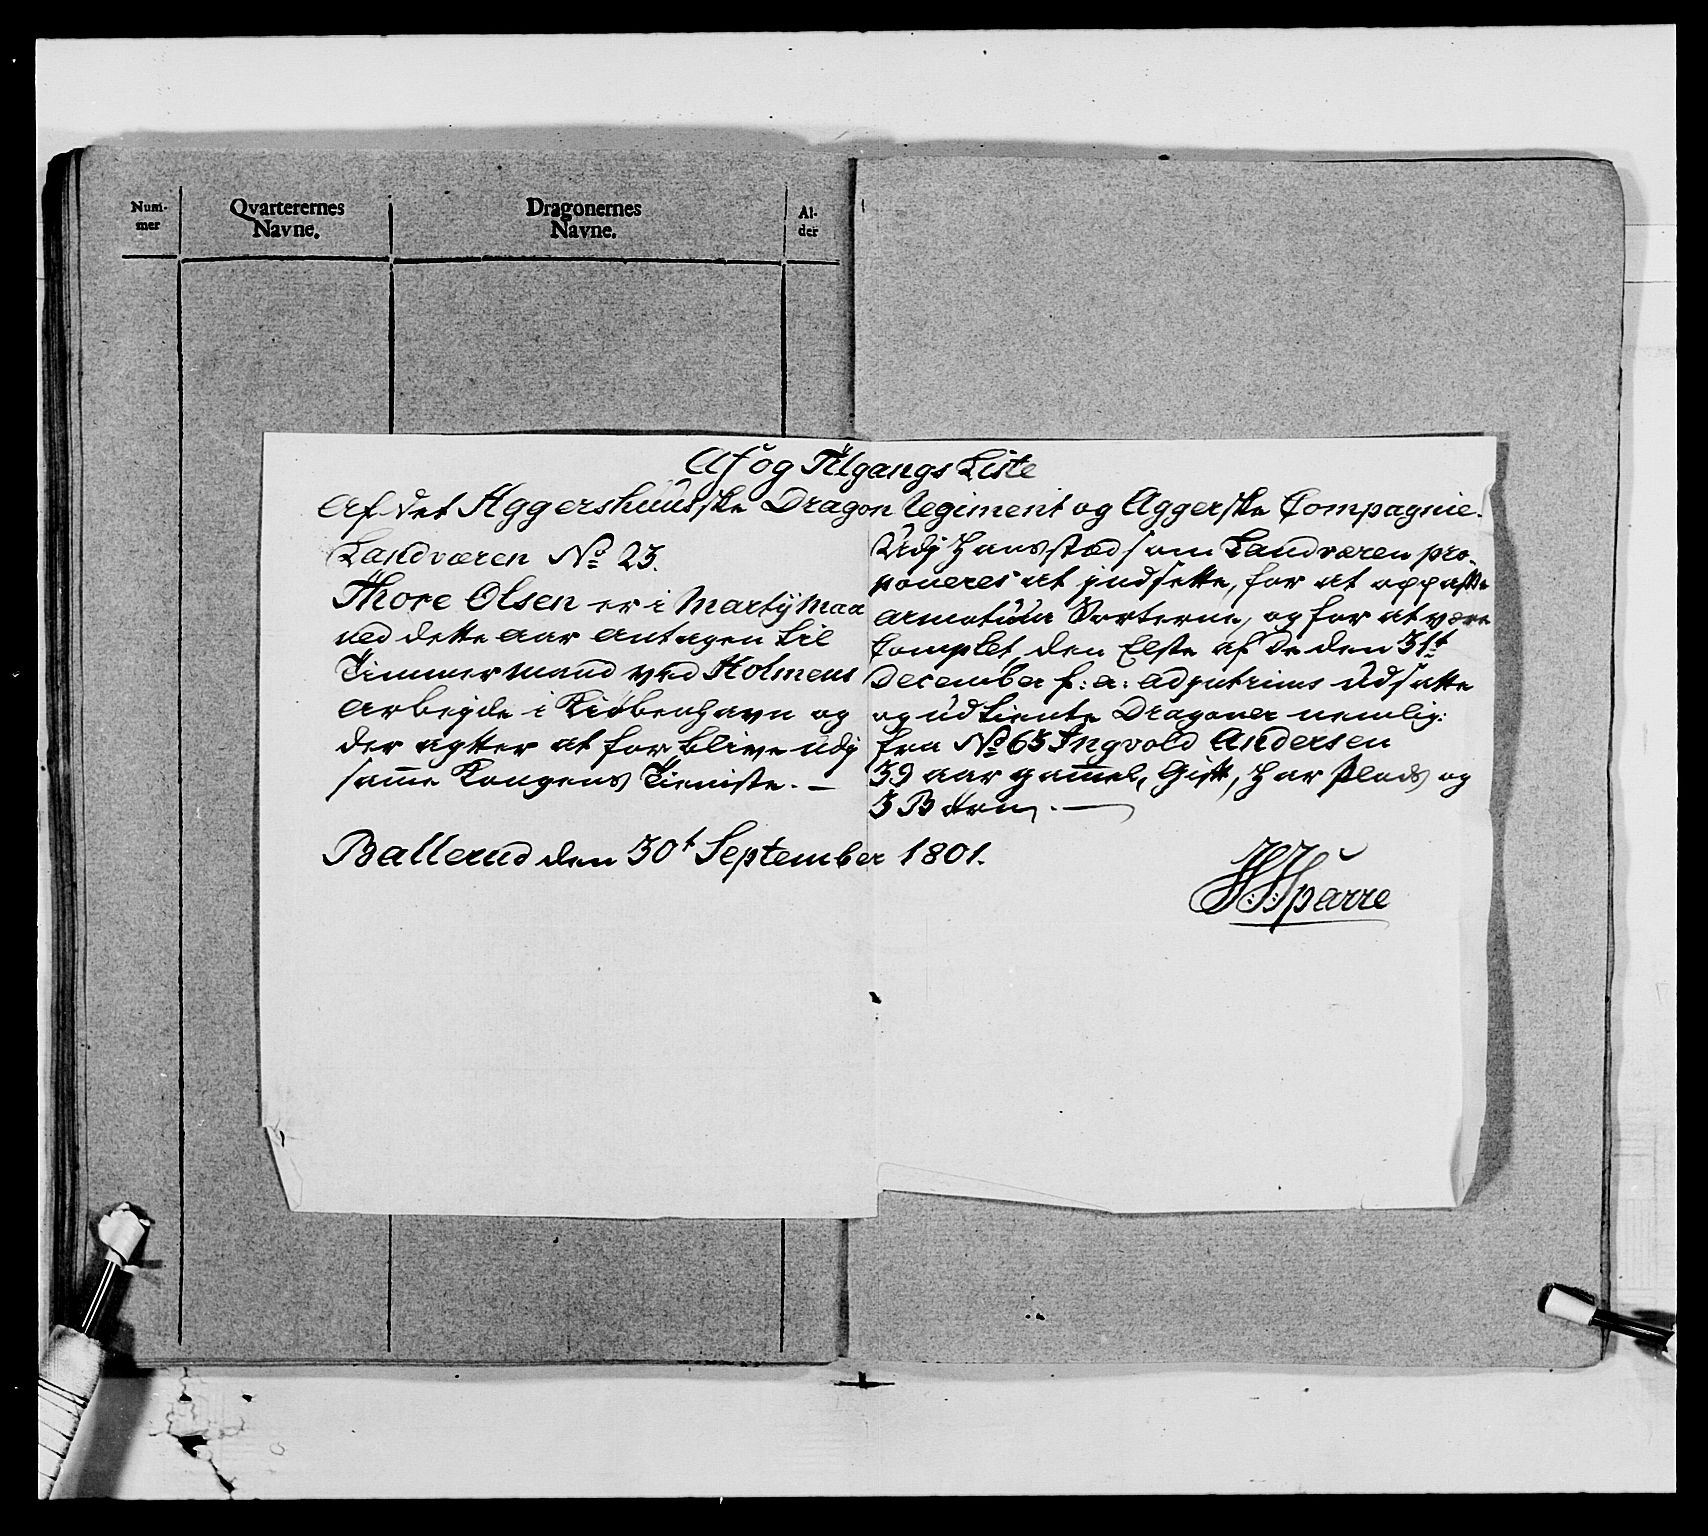 Num-
mer
Qvarterernes
Navne.
Dragonernes
Navne.
Al-
der
Af og Tilgangs Liste
Af det Aggershuusske Dragon Regiment og Aggerske Compagnie.
Landværen No 23.
Thore Olsen er i Martij Maa
ned dette aar antagen til
Timmermand ved Holmens
Arbejde i Kiøbenhavn og
der agter at forblive udj
samme Kongens Tieniste. —
Udj Hans stæd som Landværen pro-
poneres at jndsette, for at oppasse
armatuur Sorterne, og for at være
Complet, den Elste af de den 31t
December f: a: udsatte
og udtiente Dragoner nemlig:
fra No 63 Ingvold Andersen
39 aar gammel, Gift, har Plads og
3 Børn. —
Ballerud den 30t September 1801.
H: Sparre